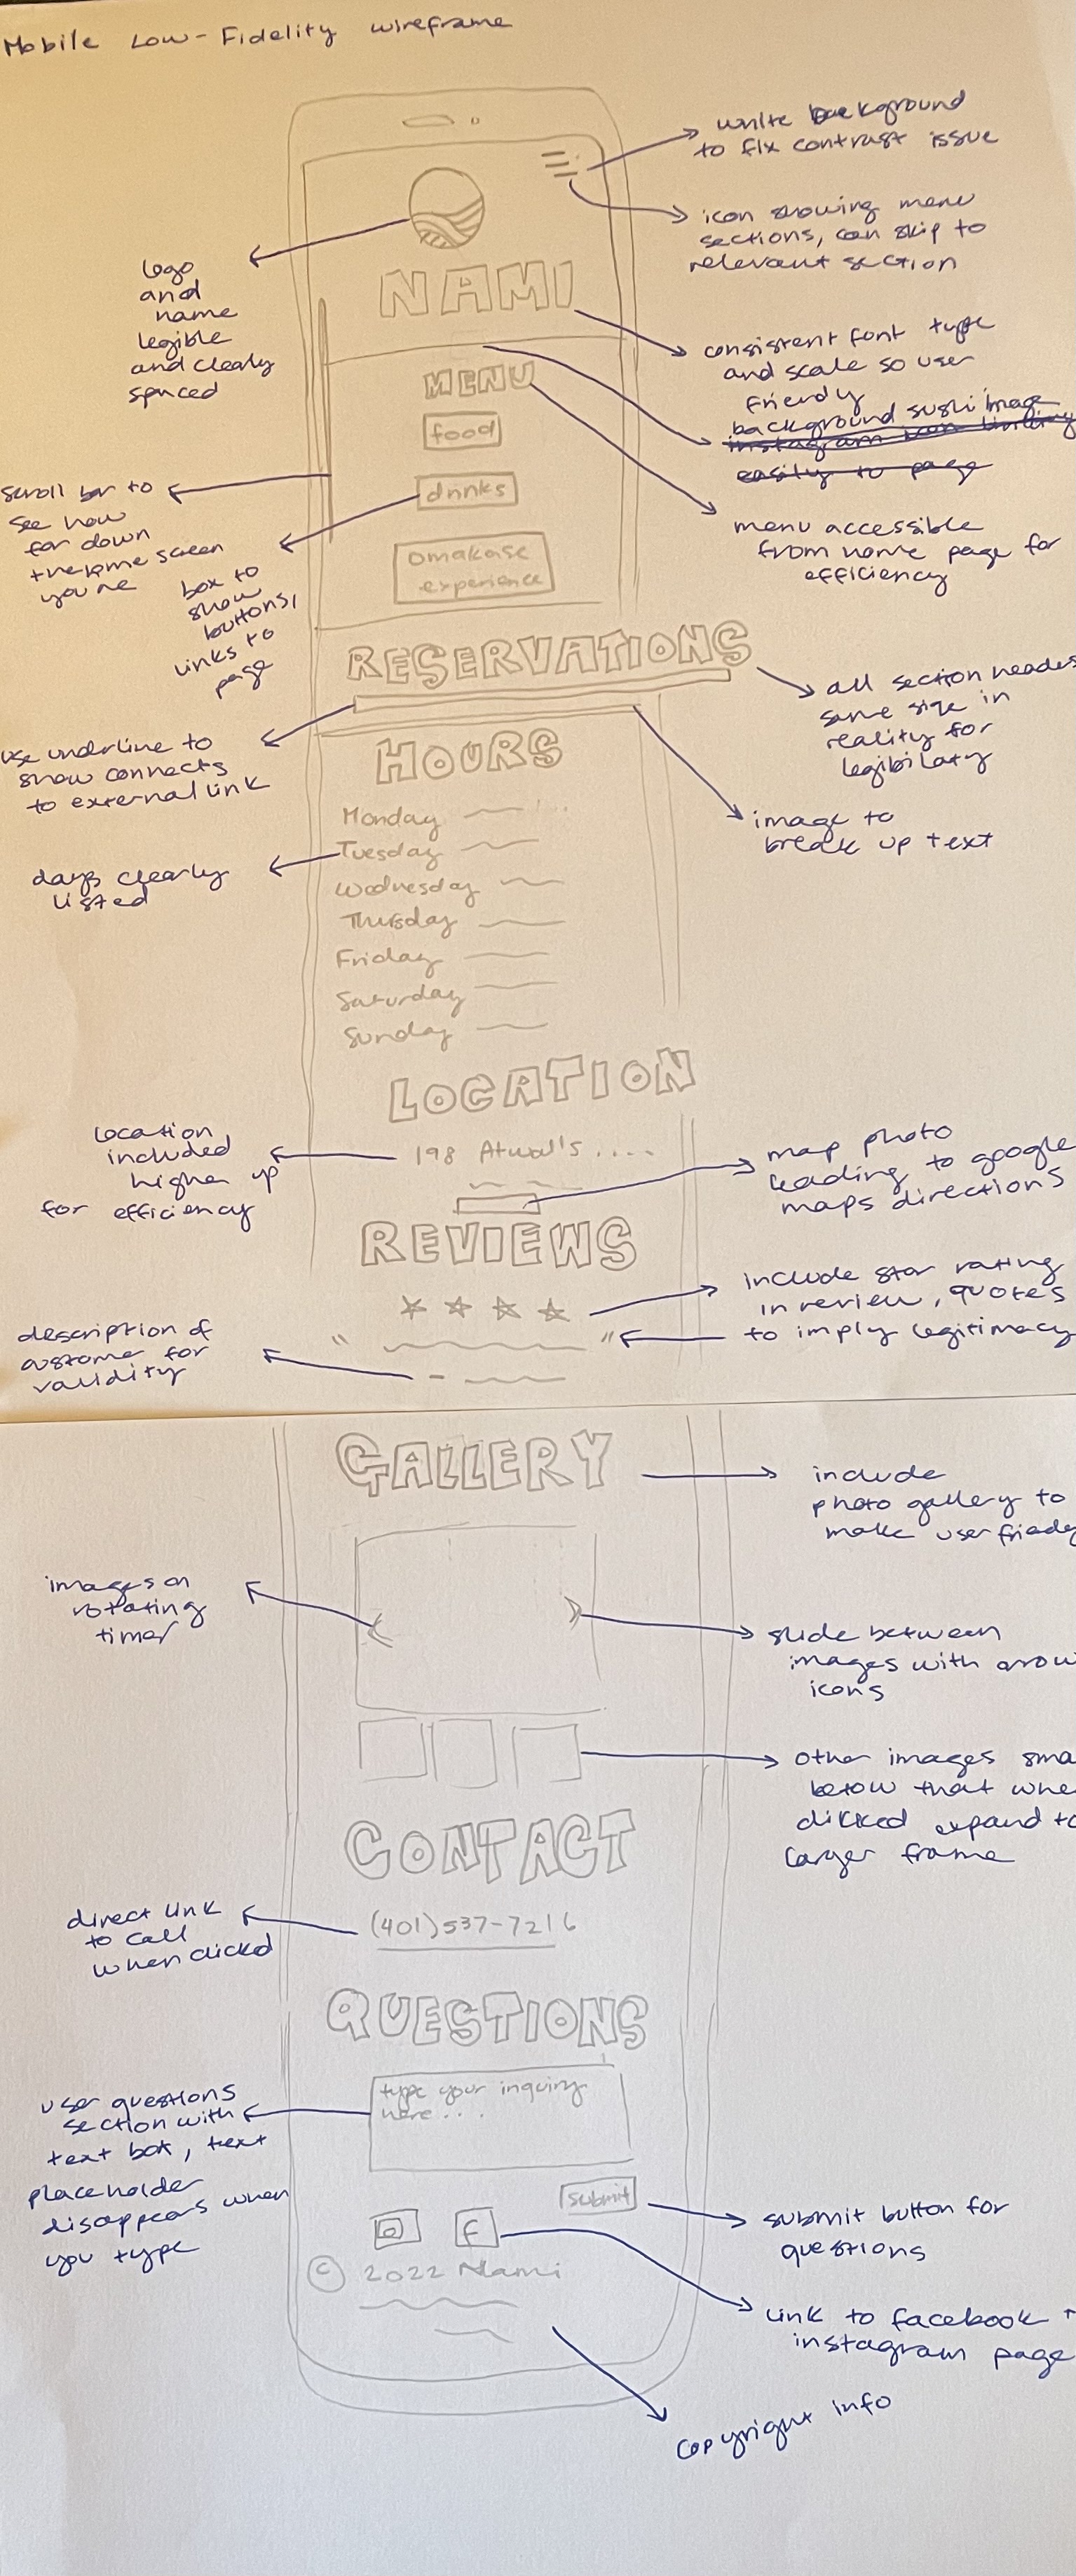 Mobile Low-Fidelity wireframe
white background
to fix contrast issue
icon showing menu
sections, can skip to
relevant section
logo
and
name
legible
and clearly
spaced
NAMI
consistent font type
and scale so user
friendly
background sushi image
instagram icon linking
easily to page
MENU
food
drinks
omakase
experience
scroll bar to
see how
far down
the home screen
you're
box to
show
buttons,
links to
page
menu accessible
from home page for
efficiency
RESERVATIONS
all section headers
same size in
reality for
legibility
use underline to
show connects
to external link
image to
break up text
HOURS
Monday
Tuesday
Wednesday
Thursday
Friday
Saturday
Sunday
days clearly
listed
LOCATION
198 Atwell's ....
location
included
higher up
for efficiency
map photo
leading to google
maps directions
REVIEWS
include star rating
in review, quotes
to imply legitimacy
" "
description of
customer for
validity
GALLERY
include
photo gallery to
make user friendly
images on
rotating
timer
slide between
images with arrow
icons
other images sma
below that whe
clicked expand to
larger frame
CONTACT
(401)537-7216
direct link
to call
when clicked
QUESTIONS
type your inquiry
here...
user questions
section with
text box, text
placeholder
disappears when
you type
submit
submit button for
questions
f
link to facebook +
instagram page
© 2022 Nami
copyright info